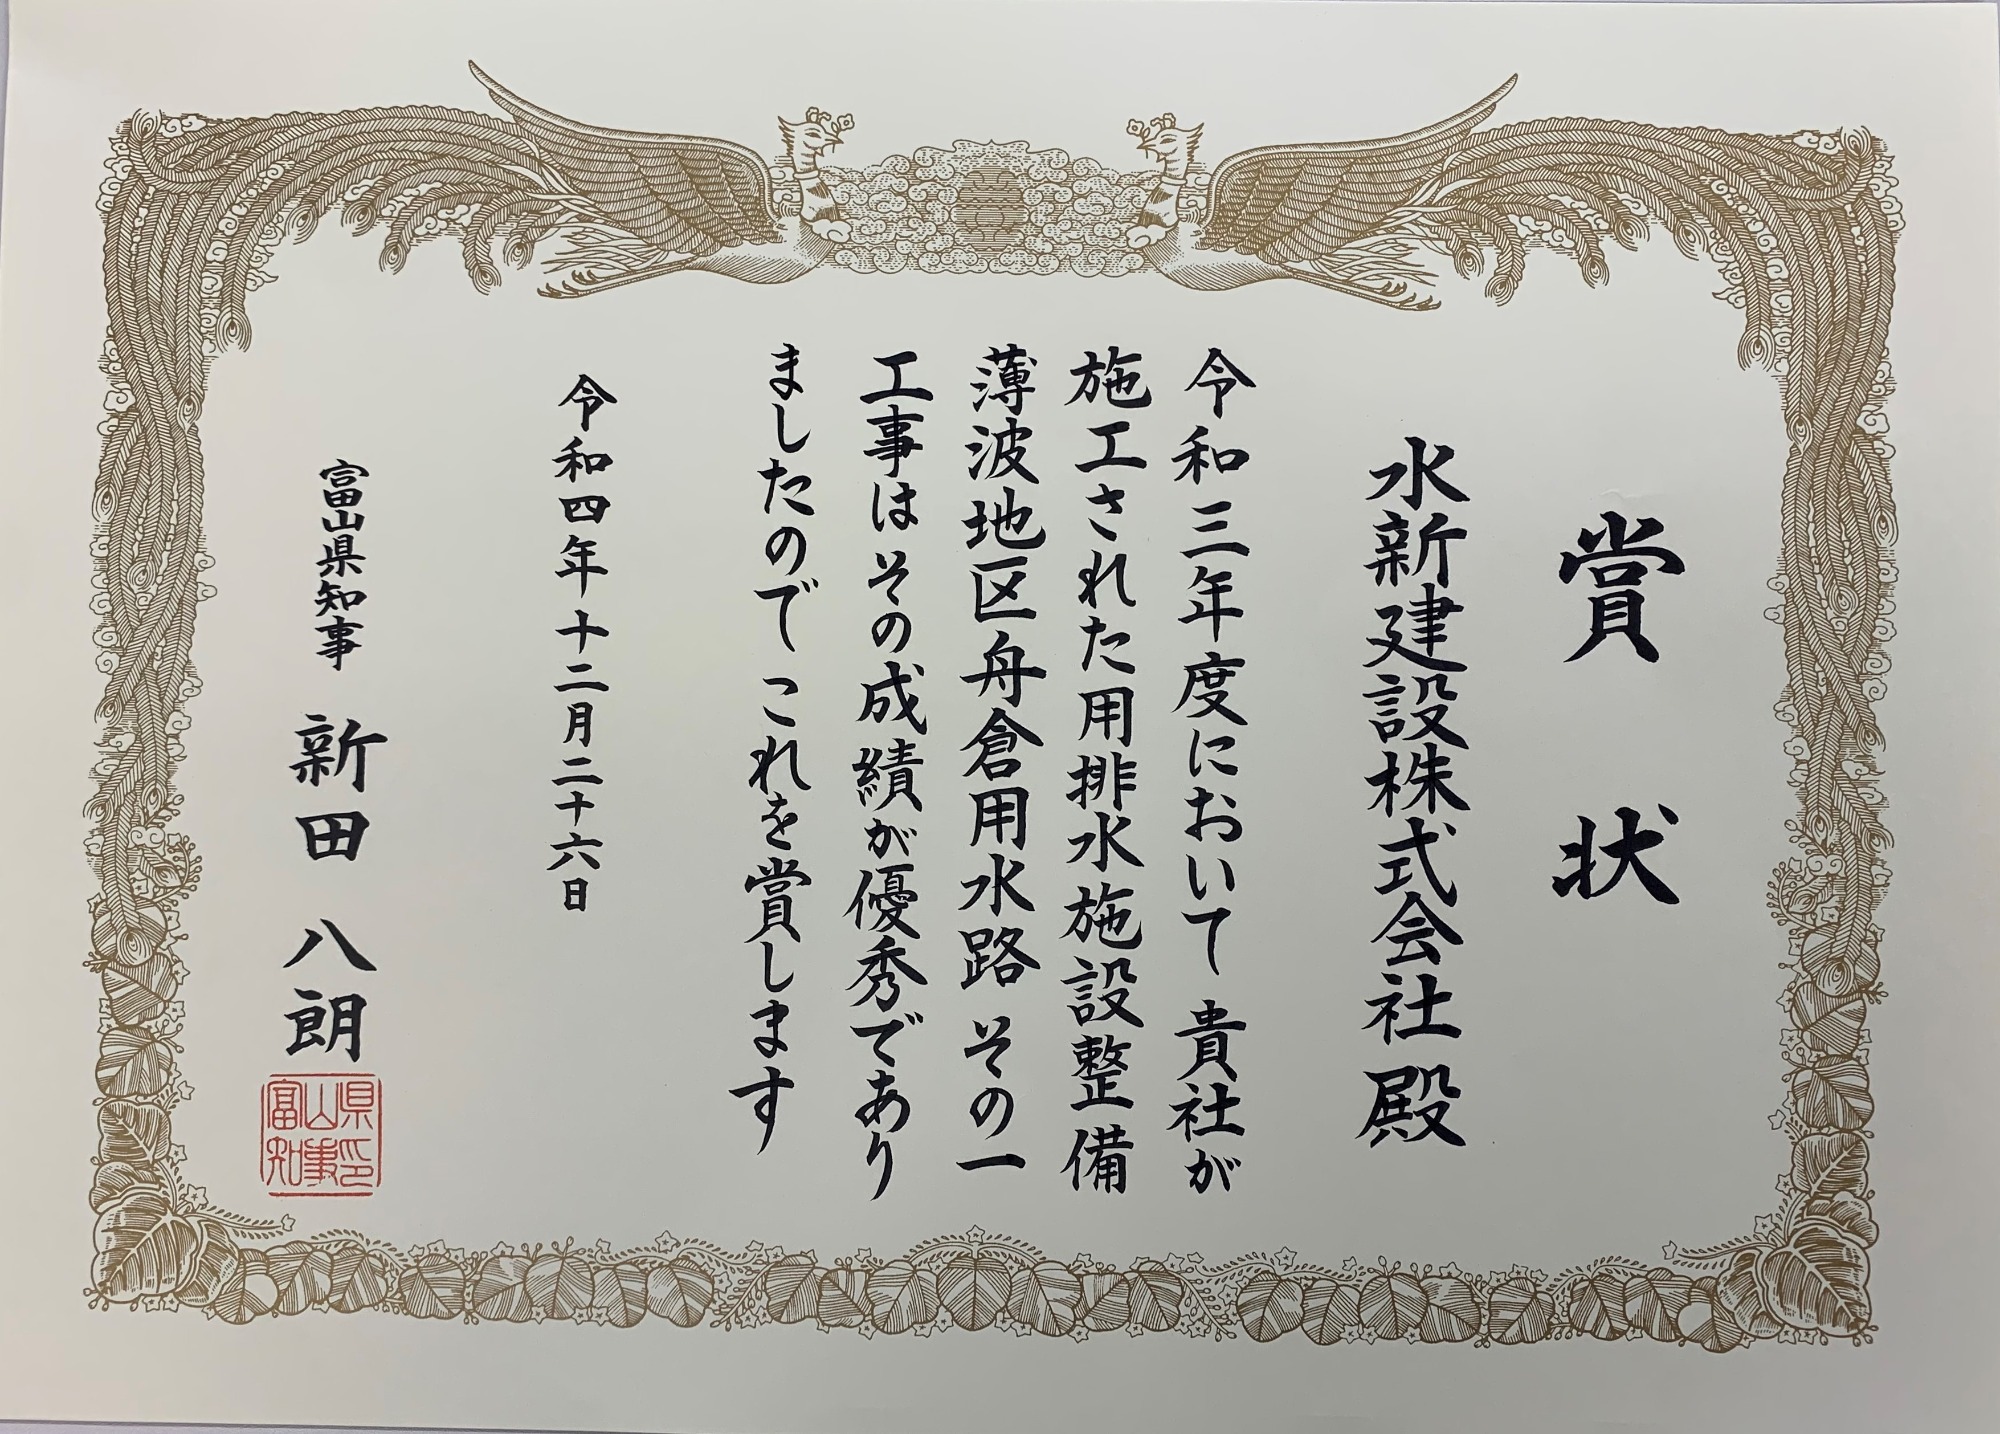 賞状
水新建設株式会社 殿
令和三年度において 貴社が
施工された用排水施設整備
薄波地区舟倉用水路 その一
工事はその成績が優秀であり
ましたので これを賞します
令和四年十二月二十六日
富山県知事 新田八朗
富山県知事印